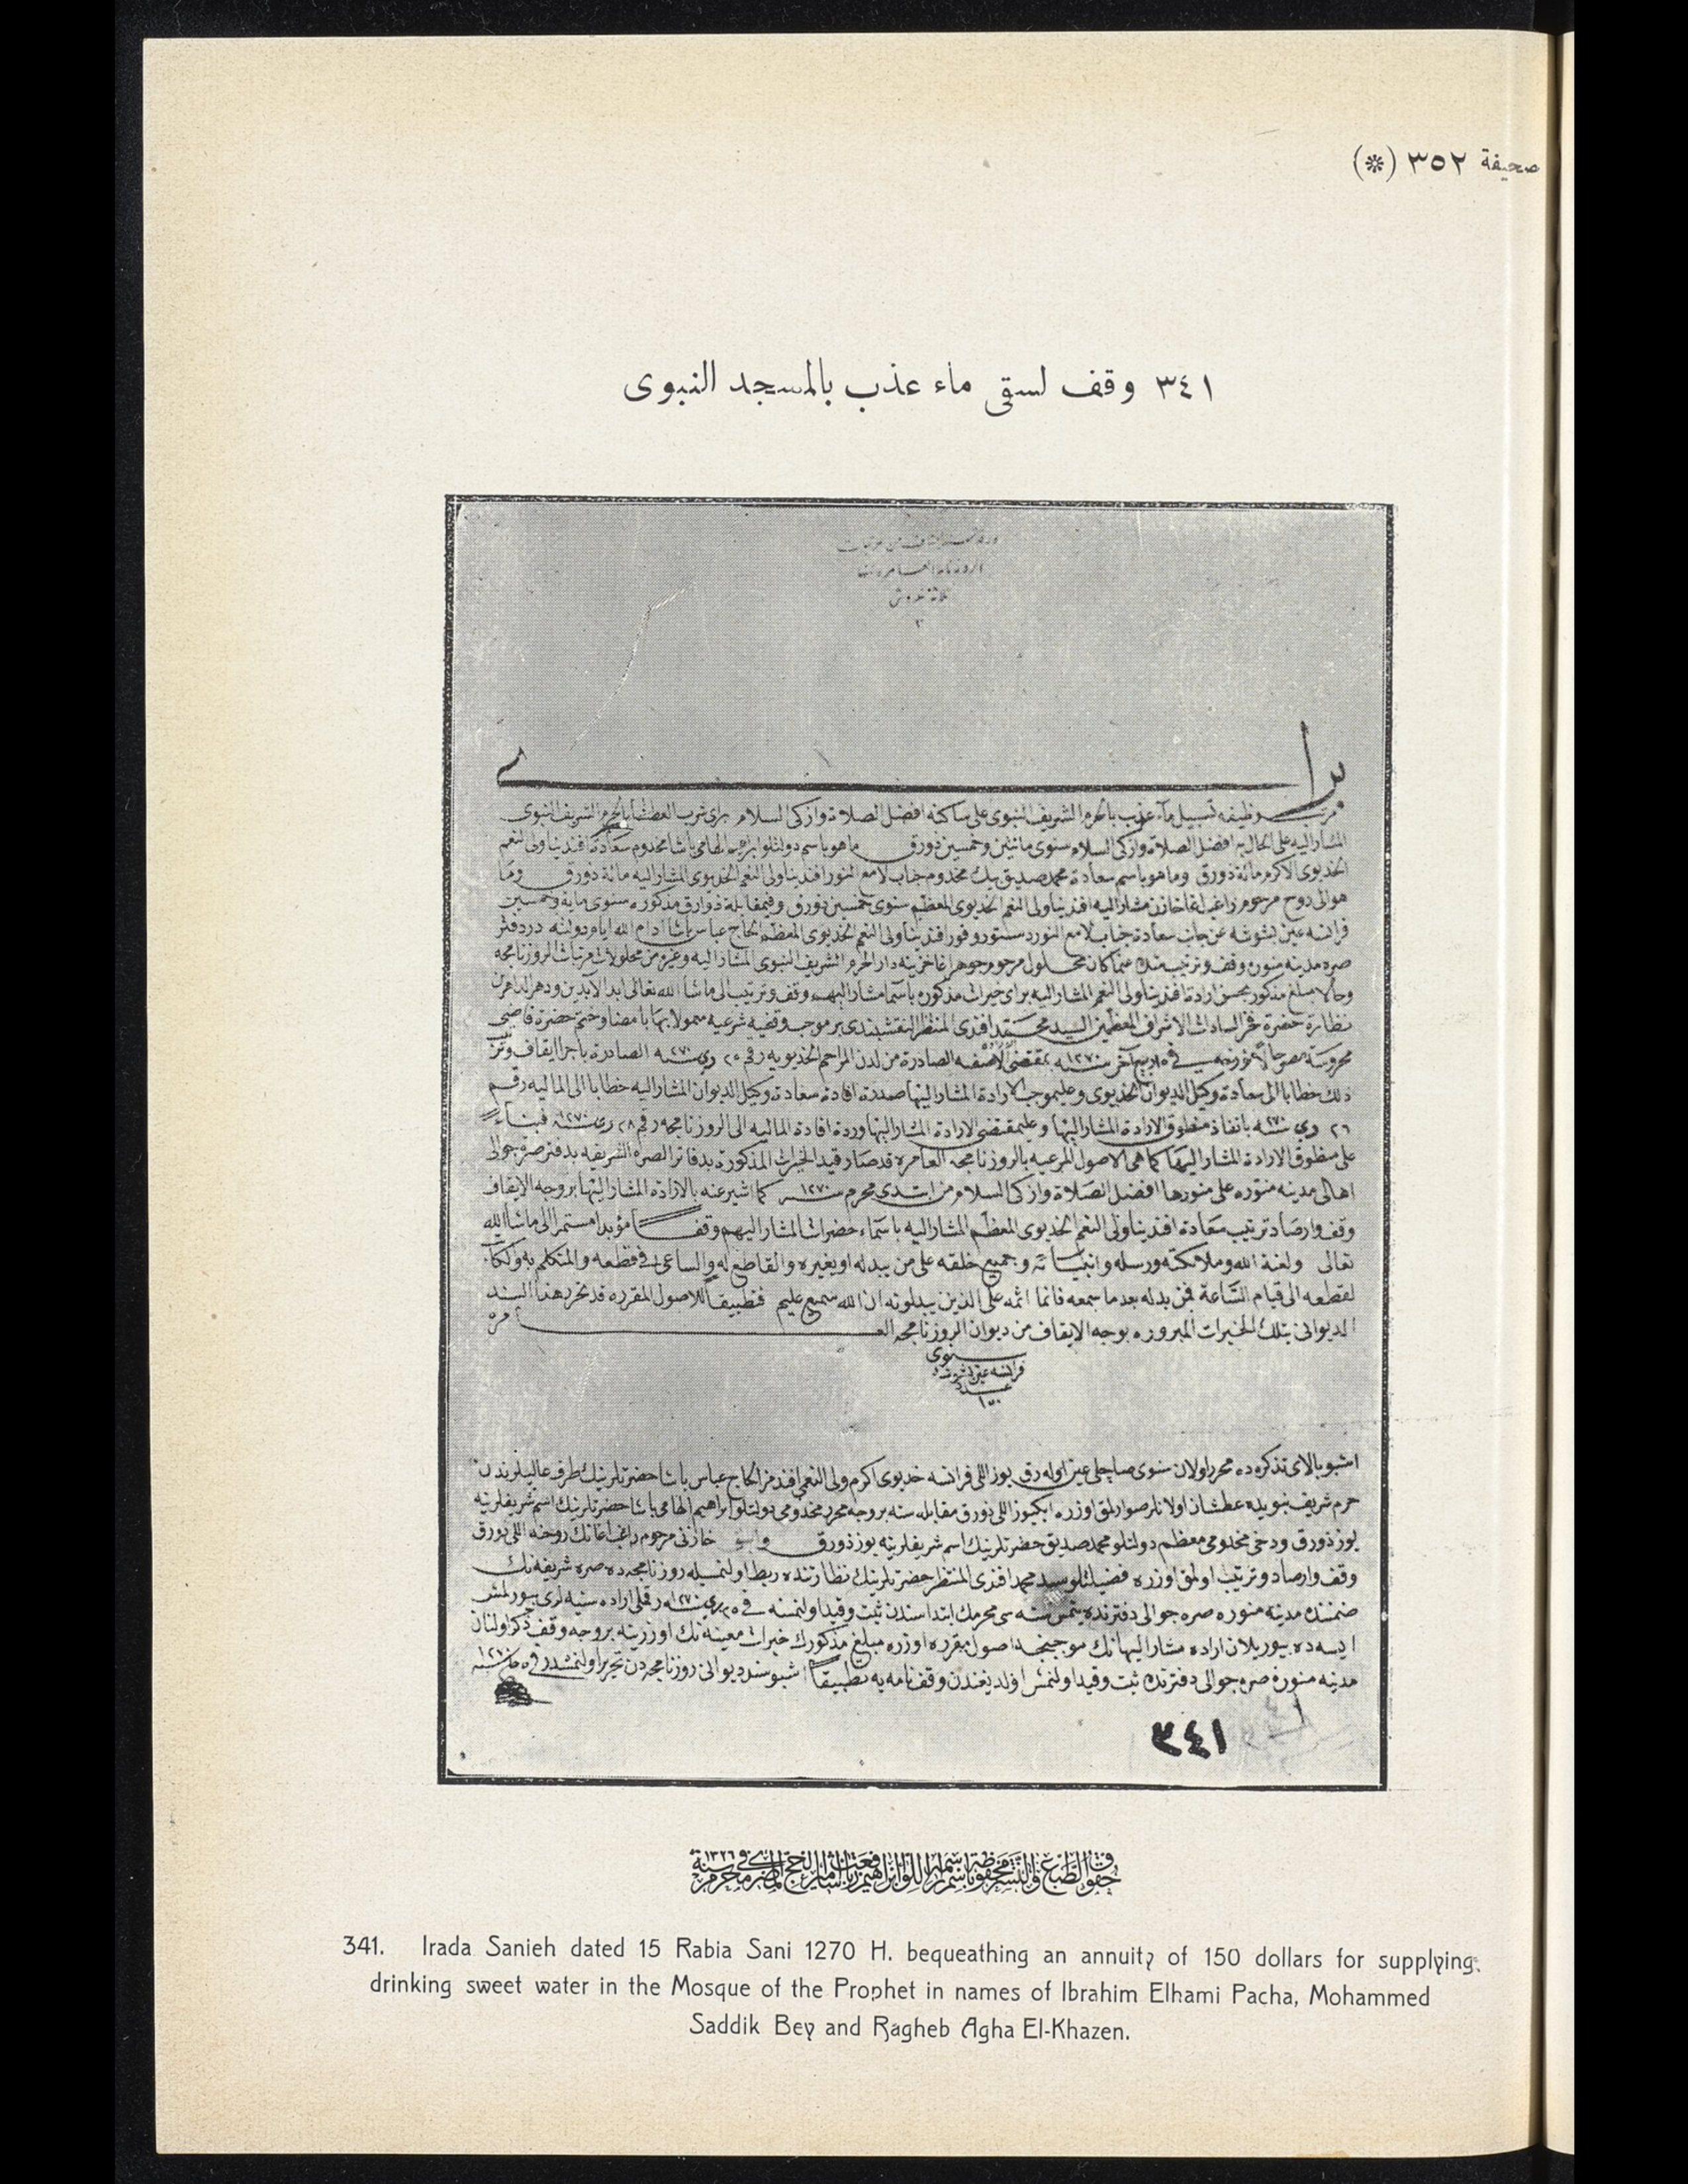 صحيفة ٣٥٢ (*)
٣٤١ وقف لسقى ماء عذب بالمسجد النبوى
ثلاثة غروش
٣
براى
وظيفه تسبيل ماء عذب بالحرم الشريف النبوى على ساكنه افضل الصلاة وازكى السلام برى شرب العطشا بالحرم الشريف النبوى
المشار اليه على الحال به افضل الصلاة وازكى السلام سنوى مائتين وخمسين ذورق ماهو باسم دولتلو ابراهيم الهامى باشا مخدوم سعادة افندينا ولى النعم
الخديوى الاكرم مائة ذورق وماهو باسم سعادة محمد صديق بيك مخدوم جناب لامع النور افندينا ولى النعم الخديوى المشار اليه مائة ذورق وما
هو الى روح مرحوم راغب اغا خازن مشار اليه افندينا ولى النعم الخديوى المعظم سنوى خمسين ذورق وفيمقابلة ذوارق مذكوره سنوى مايه وخمسين
فرانسه عين بشوشه عن جانب سعادة جناب لامع النور دستور وقور افندينا ولى النعم الخديوى المعظم الحاج عباس باشا ادام الله ايام دولته در دفتر
صره مدينه منوره وقف وترتيب عما كان محلول مرحوم جوهر اغا خزينه دار الحرم الشريف النبوى المشار اليه وغيره من محلولات مرتبات الروزنامجه
وحالا مبلغ مذكور بحسن ارادة افندينا ولى النعم المشار اليه براى خيرات مذكوره باسما مشار اليهم وقف وترتيب الى ماشا الله تعالى ابد الآبدين ودهر الداهرين
نظارة حضرة فخر السادات الاشراف المعظمين السيد محمد افندى المنتظر النقشبندى بر موجب وقفيه شرعيه بامضا وختم حضرة قاضى
محروسة مصر حالا مورخه فى ١٥ ربيع آخر سنه ١٢٧٠ بمقتضى الصادرة من لدن المراحم الخديويه رقم ٢٥ سنه ٢٧٠ الصادرة باجرا ايقاف وترتيب
ذلك خطابا الى سعادة وكيل الديوان الخديوى وعليموجب الارادة المشار اليها صدرة افادة سعادة وكيل الديوان المشار اليه خطابا الى الماليه رقم
٢٦ سنه ٢٧٠ بانفاذ منطوق الارادة المشار اليها وعليمقتضى الارادة المشار اليها وردة افادة الماليه الى الروزنامجه رقم ٢٨ سنه ١٢٧٠ فبناء
على منطوق الارادة المشار اليها كما هى الاصول المرعيه بالروزنامجه العامره قد صار قيد الخيرات المذكورة بدفاتر الصره الشريفه بدفتر صرة جوالى
اهالى مدينه منوره على منورها افضل الصلاة وازكى السلام من ابتدى محرم سنه ١٢٧٠ كما اشير عنه بالارادة المشار اليها بوجه الايقاف
وقف وارصاد ترتيب سعادة افندينا ولى النعم الخديوى المعظم المشار اليه باسماء حضرات المشار اليهم وقفا مؤبدا مستمرا الى ماشا الله
تعالى ولعنة الله وملائكته ورسله وانبيائه وجميع خلقه على من يبدله او يغيره والقاطع له والساعى فى قطعه والمتكلم به
لقطعه الى قيام الساعة فمن بدله بعد ما سمعه فانما اثمه على الذين يبدلونه ان الله سميع عليم فتطبيقا للاصول المقرره قد تحرر هذا السند
الديوانى بتلك الخيرات المبروره بوجه الايقاف من ديوان الروزنامجه العامره
سنوى
فرانسه عين بشوشه
عدد
١٥٠
اشبو بالاى تذكره ده محرر اولان سنوى عين اوله رق يوز اللى فرانسه خديوى اكرم ولى النعمى افندمز الحاج عباس باشا حضرتلرينك طرف عاليلرندن
حرم شريف نبويده عطشان اولانلر صوارلمق اوزره ايكيوز اللى ذورق مقابله سنه بروجه محرر مخدومى دولتلو ابراهيم الهامى باشا حضرتلرينك اسم شريفلرينه
يوز ذورق ودخى مخدومى معظم دولتلو محمد صديق حضرتلرينك اسم شريفلرينه يوز ذورق خازنى مرحوم راغب اغانك روحنه اللى ذورق
وقف وارصاد وترتيب اولنمق اوزره فضيلتلو سيد محمد افندى المنتظر حضرتلرينك نظارتنده ربط اولنمسيله روزنامجه ده صره شريفه نك
ضمننده مدينه منوره صره جوالى دفترنده يتمش سنه سى محرمك ابتداسندن ثبت وقيد اولنمسنه فى ٢٥ سنه ١٢٧٠ رقملى اراده سنيه لرى بيورلمش
ايسه ده بيوريلان اراده مشار اليهانك موجبنجه اصول مقرره اوزره مبلغ مذكورك خيرات معينه نك اوزرينه بروجه وقف ذكر اولنان
مدينه منوره صره جوالى دفترنده ثبت وقيد اولنمش اولديغندن وقفنامه يه تطبيقا اشبو سند ديوانى روزنامجه دن تحرير اولنمشدر
٣٤١
حقوق الطبع والنشر محفوظة باسم اللوا ابراهيم رفعت باشا امير الحج المصرى فى محرم سنة ١٣٢٦
341. Irada Sanieh dated 15 Rabia Sani 1270 H. bequeathing an annuity of 150 dollars for supplying
drinking sweet water in the Mosque of the Prophet in names of Ibrahim Elhami Pacha, Mohammed
Saddik Bey and Ragheb Agha El-Khazen.